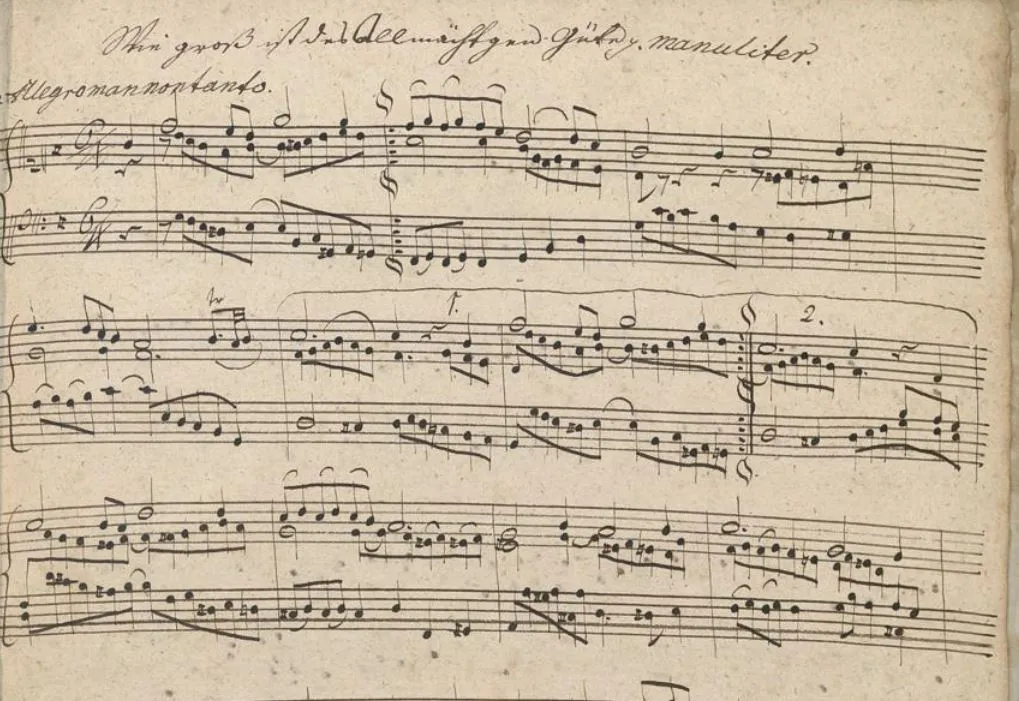 Wie groß ist des Allmächtgen Güte p. manuliter.
Allegromannontanto.
tr
1.
2.